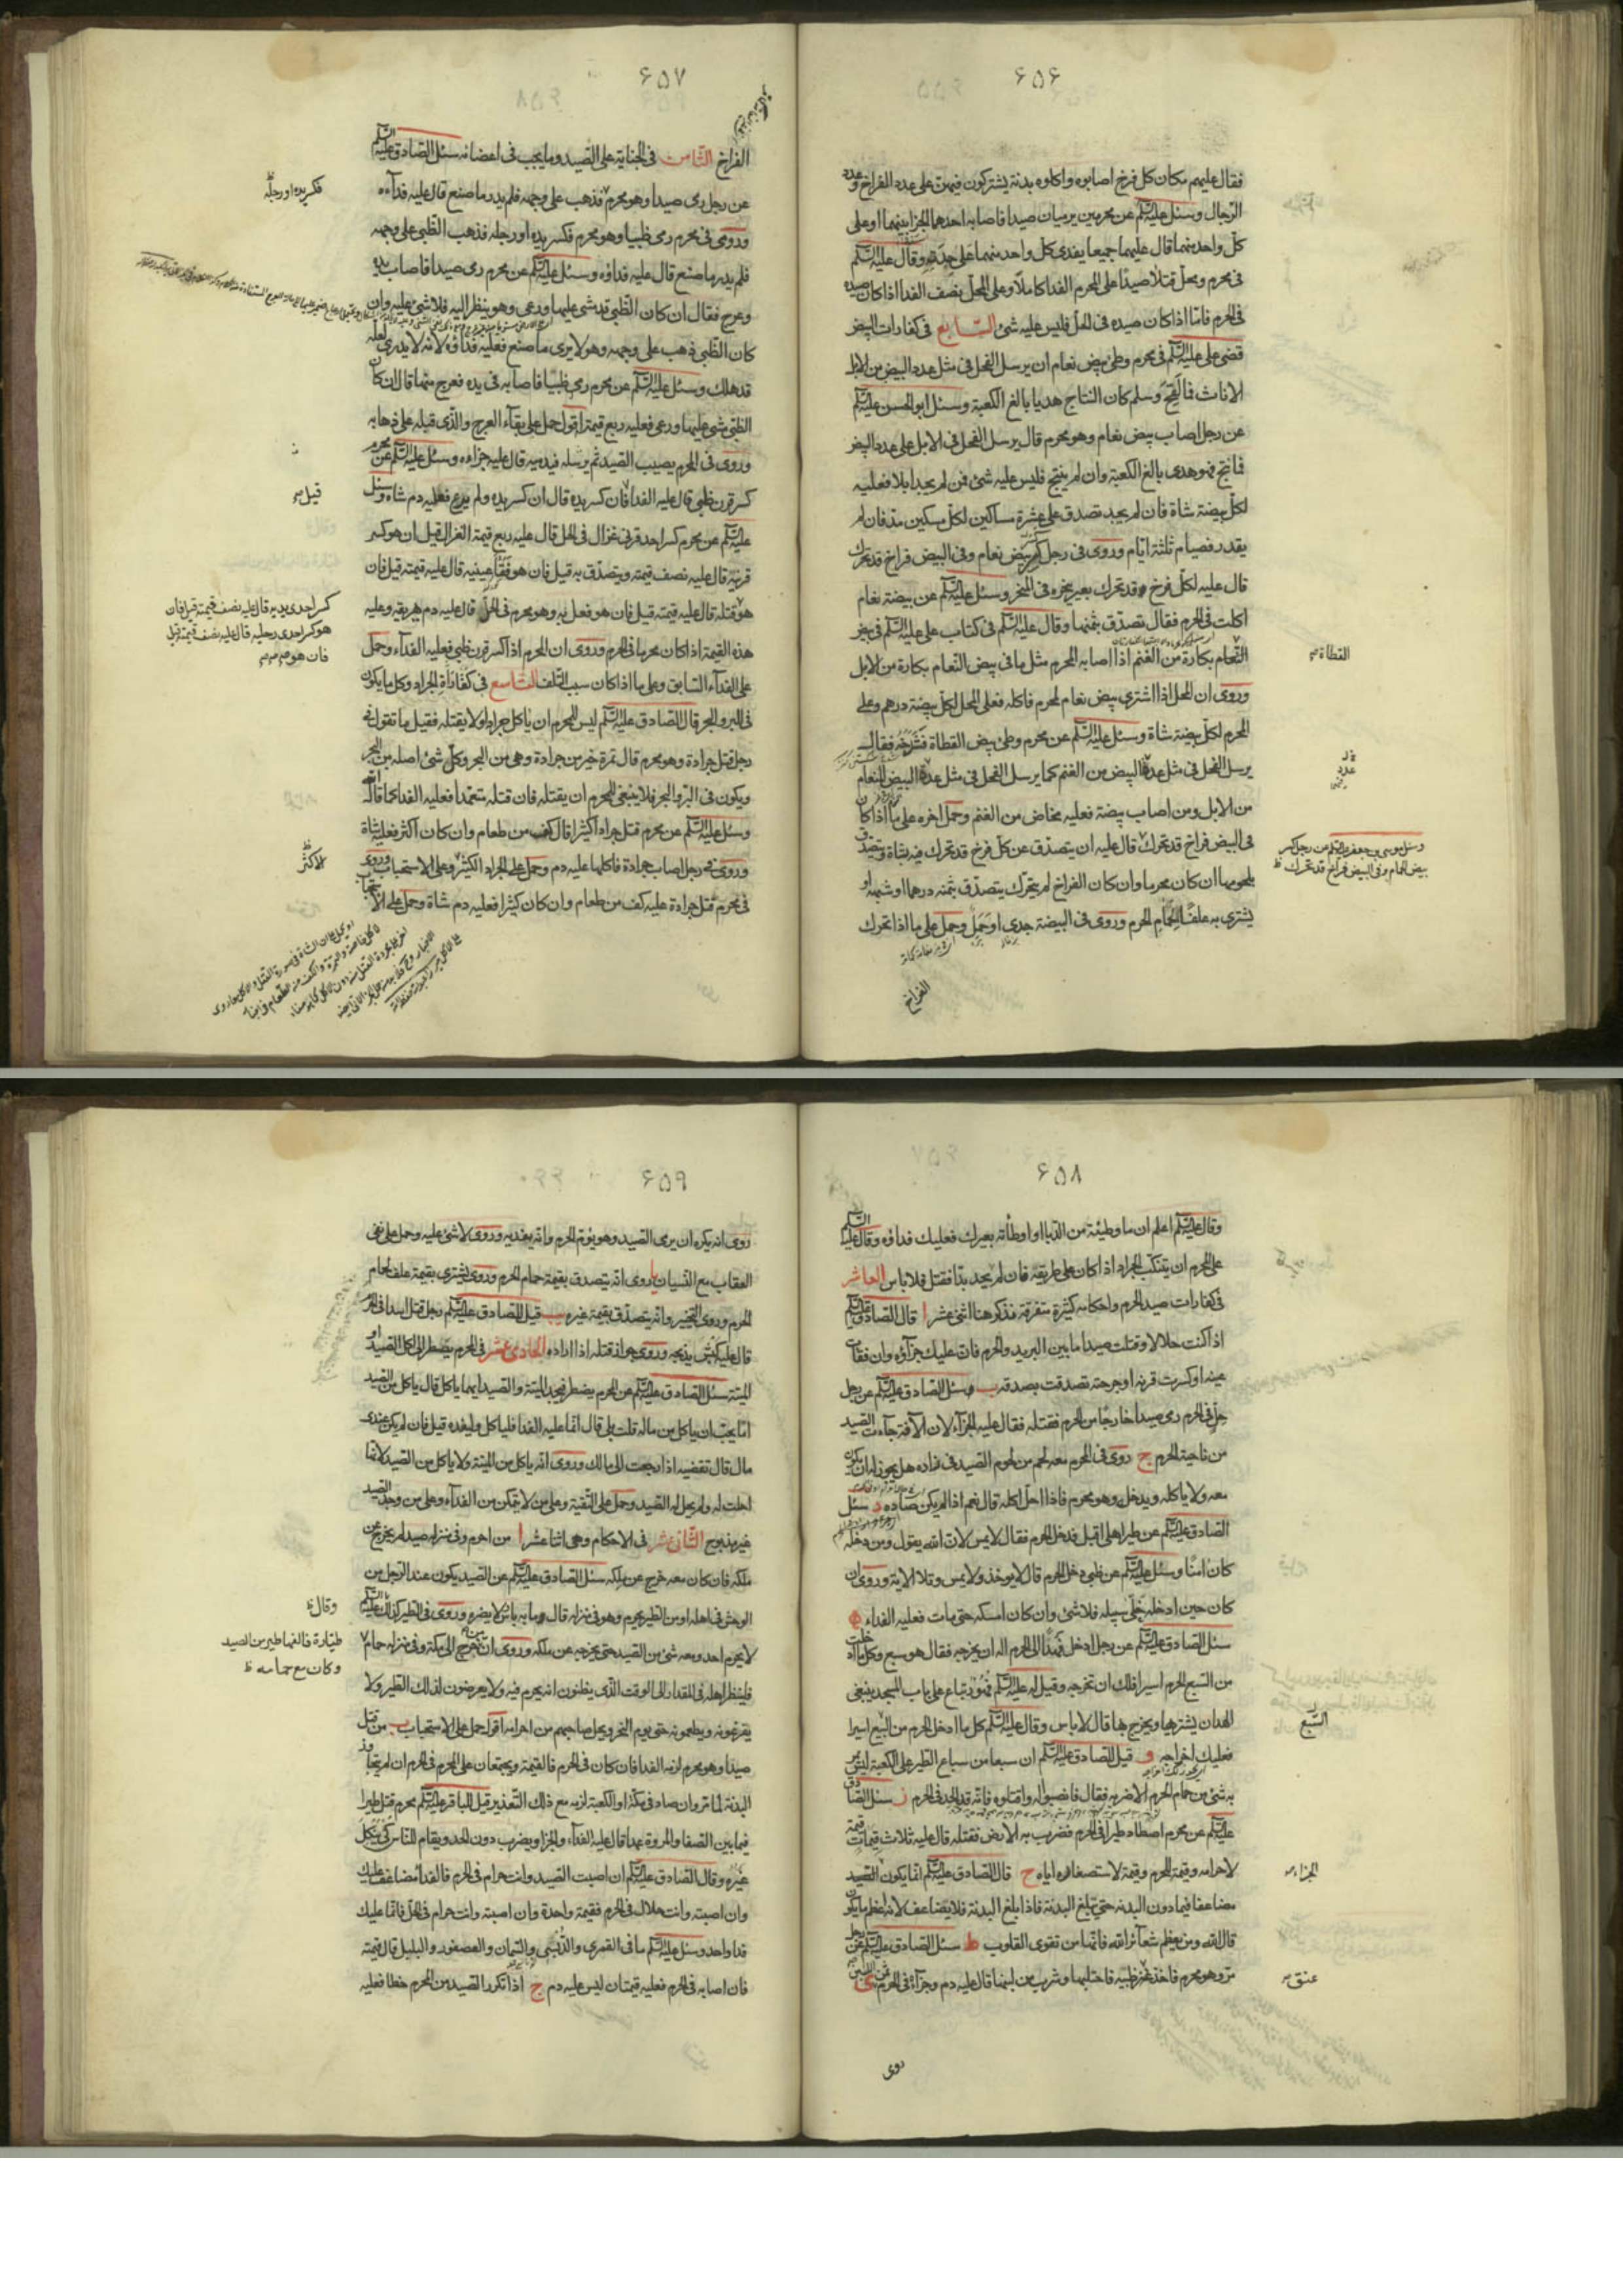 ۶۵۶
فقال عليهم مكان كل فرخ اصابوه واكلوه بدنة يشتركون فيهن على عدد الفراخ وعدد
الرجال وسئل عليه السلم عن محرمين يرميان صيدا فاصابه احدهما الجزا بينهما او على
كل واحد منهما قال عليهما جميعا يفدى كل واحد منهما على حدته وقال عليه السلم
فى محرم ومحل قتلا صيدا على المحرم الفدا كاملا وعلى المحل نصف الفدا اذا كان صيده
فى الحرم فامّا اذا كان صيده فى الحل فليس عليه شئ السّابع فى كفارات البيض
قضى على عليه السلم فى محرم وطئ بيض نعام ان يرسل الفحل فى مثل عدد البيض من الابل
الاناث فما لقح وسلم كان النتاج هديا بالغ الكعبة وسئل ابو الحسن عليه السلم
عن رجل اصاب بيض نعام وهو محرم قال يرسل الفحل فى الابل على عدد البيض
فما نتج فهو هدى بالغ الكعبة وان لم ينتج فليس عليه شئ فمن لم يجد ابلا فعليه
لكل بيضة شاة فان لم يجد تصدق على عشرة مساكين لكل مسكين مدّ فان لم
يقدر فصيام ثلثة ايام وروى فى رجل كسر بيض نعام وفى البيض فراخ قد تحرك
قال عليه لكل فرخ قد تحرك بعير ينحره فى المنحر وسئل عليه السلم عن بيضة نعام
اكلت فى الحرم فقال تصدق بثمنها وقال عليه السلم فى كتاب على عليه السلم فى بيض
النعام بكارة من الغنم اذا اصابه المحرم مثل ما فى بيض النعام بكارة من الابل
القطاة
وروى ان المحل اذا اشترى بيض نعام لمحرم فاكله فعلى المحل لكل بيضة درهم وعلى
المحرم لكل بيضة شاة وسئل عليه السلم عن محرم وطئ بيض القطاة فشدخه فقال
يرسل الفحل فى مثل عدة البيض من الغنم كما يرسل الفحل فى مثل عدة البيض النعام
عدد
من الابل ومن اصاب بيضة فعليه مخاض من الغنم وحمل اخره على ما اذا كان
فى البيض فراخ قد تحرك قال عليه ان يتصدق عن كل فرخ قد تحرك فيه بشاة ويتصدق
وسئل موسى بن جعفر عليه السلم عن رجل كسر
بيض الحمام وفى البيض فراخ قد تحرك
بلحومها ان كان محرما وان كان الفراخ لم يتحرك يتصدق بثمنه درهما او شبهه او
يشترى به علفا لحمام الحرم وروى فى البيضة جدى او حمل وحمل على ما اذا تحرك
الفراخ
۶۵۷
الفراخ الثّامن فى الجناية على الصيد وما يجب فى اعضائه سئل الصادق عليه السلم
عن رجل رمى صيدا وهو محرم فذهب على وجهه فلم يدر ما صنع قال عليه فداءه
فكسر يده او رجله
وروى فى محرم رمى ظبيا وهو محرم فكسر يده او رجله فذهب الظبى على وجهه
فلم يدر ما صنع قال عليه فداؤه وسئل عليه السلم عن محرم رمى صيدا فاصاب يده
وعرج فقال ان كان الظبى قد مشى عليها ورعى وهو ينظر اليه فلا شئ عليه وان
كان الظبى ذهب على وجهه وهو لا يرى ما صنع فعليه فداؤه لانه لا يدرى لعله
قد هلك وسئل عليه السلم عن محرم رمى ظبيا فاصابه فى يده فعرج منها قال ان كان
الظبى مشى عليها ورعى فعليه ربع قيمته اقول حمل على بقاء العرج والذى قبله على ذهابه
وروى فى المحرم يصيب الصيد ثم يرسله فيدميه قال عليه جزاءه وسئل عليه السلم عن محرم
كسر قرن ظبى قال عليه الفدا فان كسر يده قال ان كسر يده ولم يرع فعليه دم شاة وسئل
قيل
عليه السلم عن محرم كسر احد قرنى غزال فى الحل قال عليه ربع قيمة الغزال قيل ان هو كسر
قرنيه قال عليه نصف قيمته ويتصدق به قيل فان هو فقأ عينيه قال عليه قيمته قيل فان
كسر احدى يديه قال عليه نصف قيمته قيل فان
هو كسر احدى رجليه قال عليه نصف قيمته قيل
فان هو
هو قتله قال عليه قيمته قيل فان هو فعل به وهو محرم فى الحل قال عليه دم يهريقه وعليه
هذه القيمة اذا كان محرما فى الحرم وروى ان المحرم اذا كسر قرن ظبى فعليه الفداء وحمل
على الفداء السابق وعلى ما اذا كان سبب التلف التّاسع فى كفارة الجراد وكل ما يكون
فى البر والبحر قال الصادق عليه السلم ليس للمحرم ان ياكل جرادا ولا يقتله فقيل ما تقول فى
رجل قتل جرادة وهو محرم قال تمرة خير من جرادة وهى من البحر وكل شئ اصله من البحر
ويكون فى البر والبحر فلا ينبغى للمحرم ان يقتله فان قتله متعمدا فعليه الفدا كما قال الله
وسئل عليه السلم عن محرم قتل جرادا كثيرا قال كف من طعام وان كان اكثر فعليه شاة
وروى فى رجل اصاب جرادة فاكلها عليه دم وحمل على الجراد الكثير وعلى الاستحباب وروى
الاكثر
فى محرم قتل جرادة عليه كف من طعام وان كان كثيرا فعليه دم شاة وحمل على الاستحباب
۶۵۸
وقال عليه السلم اعلم ان ما وطئته من الدبا او اوطأته بعيرك فعليك فداؤه وقال عليه السلم
على المحرم ان يتنكب الجراد اذا كان على طريقه فان لم يجد بدا فقتل فلا باس العاشر
فى كفارات صيد الحرم واحكامه كثيرة متفرقة نذكر هنا اثنى عشر ا قال الصادق عليه السلم
اذا كنت حلالا وقتلت صيدا ما بين البريد والحرم فان عليك جزاؤه وان فقات
عينه او كسرت قرنه او جرحته تصدقت بصدقه ب وسئل الصادق عليه السلم عن رجل
حل فى الحرم رمى صيدا خارجا من الحرم فقتله فقال عليه الجزاء لان الآفة جاءت الصيد
من ناحية الحرم ج روى فى المحرم معه لحم من لحوم الصيد فى زاده هل يجوز ان يكون
معه ولا ياكله ويدخل وهو محرم فاذا احل اكله قال نعم اذا لم يكن صاده د سئل
الصادق عليه السلم عن طير اهلى اقبل فدخل الحرم فقال لا يمس لان الله يقول ومن دخله
كان امنا وسئل عليه السلم عن ظبى دخل الحرم قال لا يوخذ ولا يمس وتلا الاية وروى ان
كان حين ادخله خلى سبيله فلا شئ وان كان امسكه حتى مات فعليه الفداء ه
سئل الصادق عليه السلم عن رجل ادخل فهدا الى الحرم اله ان يخرجه فقال هو سبع وكل ما ادخلت
من السبع الحرم اسيرا فلك ان تخرجه وقيل له عليه السلم فهود تباع على باب المسجد ينبغى
لاحد ان يشتريها ويخرج بها قال لا باس وقال عليه السلم كل ما ادخل الحرم من السبع اسيرا
السّبع
فعليك اخراجه و قيل للصادق عليه السلم ان سبعا من سباع الطير على الكعبة ليس يمر
به شئ من حمام الحرم الا ضربه فقال فانصبوا له واقتلوه فانه قد الحد فى الحرم ز سئل الصادق
عليه السلم عن محرم اصطاد طيرا فى الحرم فضرب به الارض فقتله قال عليه ثلاث قيمات قيمة
لاحرامه وقيمة للحرم وقيمة لاستصغاره اياه ح قال الصادق عليه السلم انما يكون الصيد
الجزاء
مضاعفا فيما دون البدنة حتى تبلغ البدنة فاذا بلغ البدنة فلا يضاعف لانه اعظم ما يكون
قال الله ومن يعظم شعائر الله فانها من تقوى القلوب ط سئل الصادق عليه السلم عن رجل
مر وهو محرم فاخذ عنز ظبية فاحتلبها وشرب من لبنها قال عليه دم وجزاء فى الحرم ثمن اللبن ى
عنق
روى
۶۵۹
روى انه يكره ان يرمى الصيد وهو يؤم الحرم وانه يفديه وروى لا شئ عليه وحمل على نفى
العقاب مع النسيان يا روى انه يتصدق بقيمة حمام الحرم وروى يشترى بقيمة علف لحمام
الحرم وروى التخيير وانه يتصدق بقيمة غيره يب قيل للصادق عليه السلم رجل قتل اسدا فى الحرم
قال عليه كبش يذبحه وروى جواز قتله اذا اراده الحادى عشر فى المحرم يضطر الى اكل الصيد او
الميتة سئل الصادق عليه السلم عن المحرم يضطر فيجد الميتة والصيد ايهما ياكل قال ياكل من الصيد
اما يحب ان ياكل من ماله قلت بلى قال انما عليه الفدا فلياكل وليفده قيل فان لم يكن عندى
مال قال تقضيه اذا رجعت الى مالك وروى انه ياكل من الميتة ولا ياكل من الصيد لانها
احلت له ولم يحل له الصيد وحمل على التقية وعلى من لا يتمكن من الفداء وعلى من وجد الصيد
غير مذبوح الثّانى عشر فى الاحكام وهى اثنا عشر ا من احرم وفى منزله صيد لم يخرج عن
ملكه فان كان معه خرج عن ملكه سئل الصادق عليه السلم عن الصيد يكون عند الرجل من
الوحش فى اهله او من الطير يحرم وهو فى منزله قال وما به باس لا يضره وروى فى الطير كذلك
وقال
لا يحرم احد ومعه شئ من الصيد حتى يخرجه عن ملكه وروى ان من خرج الى مكة وفى منزله حمام
طيارة فالفها طير من الصيد
وكان مع حمامه
فلينظر اهله فى المقدار الى الوقت الذى يظنون انه يحرم فيه ولا يعرضون لذلك الطير ولا
يفزعونه ويطعمونه حتى يوم النحر ويحل صاحبهم من احرامه اقول حمل على الاستحباب ب من قتل
صيدا وهو محرم لزمه الفدا فان كان فى الحرم فالقيمة ويجتمعان على المحرم فى الحرم ان لم يتجاوز
البدنة لما مر وان صاد فى مكة او الكعبة لزمه مع ذلك التعذير قيل للباقر عليه السلم محرم قتل طيرا
فيما بين الصفا والمروة عمدا قال عليه الفداء والجزا ويضرب دون الحد ويقام للناس كى ينكل
غيره وقال الصادق عليه السلم ان اصبت الصيد وانت حرام فى الحرم فالفدا مضاعف عليك
وان اصبته وانت حلال فى الحرم فقيمة واحدة وان اصبته وانت حرام فى الحل فانما عليك
فدا واحد وسئل عليه السلم ما فى القمرى والدبسى والسمان والعصفور والبلبل قال قيمته
فان اصابه فى الحرم فعليه قيمتان ليس عليه دم ج اذا تكرر الصيد من المحرم خطا فعليه